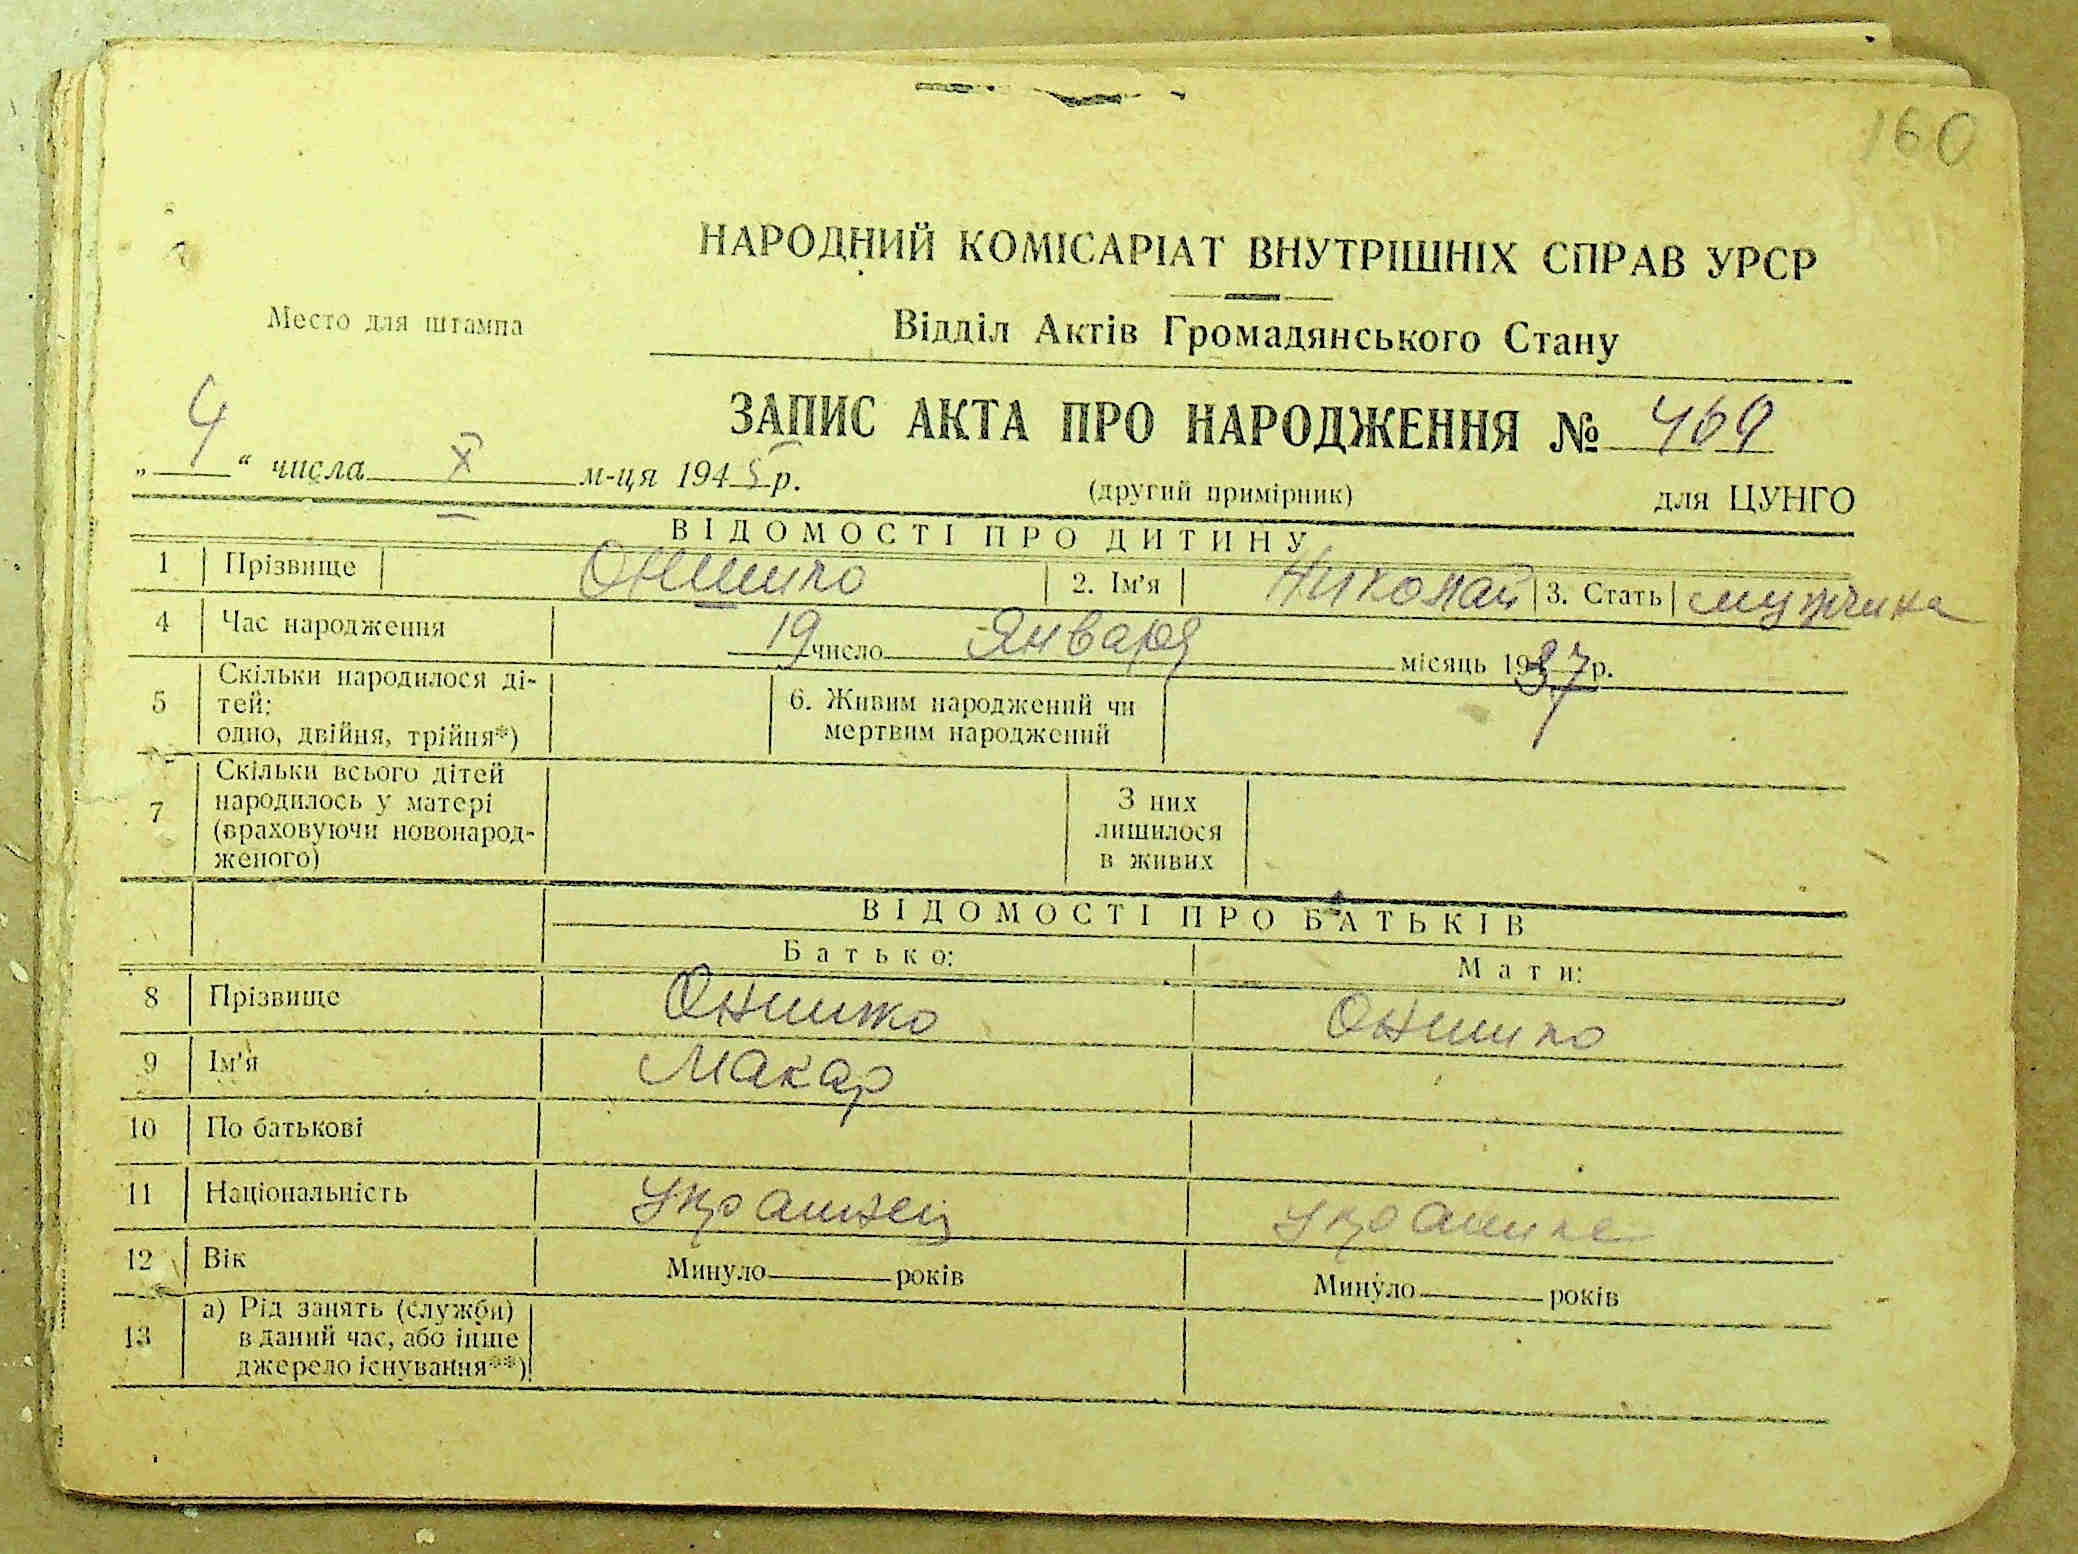 160
НАРОДНИЙ КОМІСАРІАТ ВНУТРІШНІХ СПРАВ УРСР
Место для штампа
Відділ Актів Громадянського Стану
ЗАПИС АКТА ПРО НАРОДЖЕННЯ № 469
„4“ числа X м-ця 1945 р.
(другий примірник) для ЦУНГО
ВІДОМОСТІ ПРО ДИТИНУ
1 Прізвище Онишко 2. Ім'я Николай 3. Стать мужчина
4 Час народження 19 число Января місяць 1937 р.
5 Скільки народилося ді-
тей:
одно, двійня, трійня*)
6. Живим народжений чи
мертвим народжений
7 Скільки всього дітей
народилось у матері
(враховуючи новонарод-
женого)
З них
лишилося
в живих
ВІДОМОСТІ ПРО БАТЬКІВ
Батько: Мати:
8 Прізвище Онишко Онишко
9 Ім'я Макар
10 По батькові
11 Національність Украинец Украинка
12 Вік Минуло років Минуло років
13 а) Рід занять (служби)
в даний час, або інше
джерело існування**)